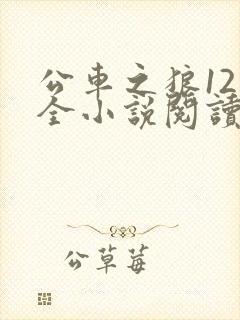 公車之狼12
全小説閱讀
公草莓